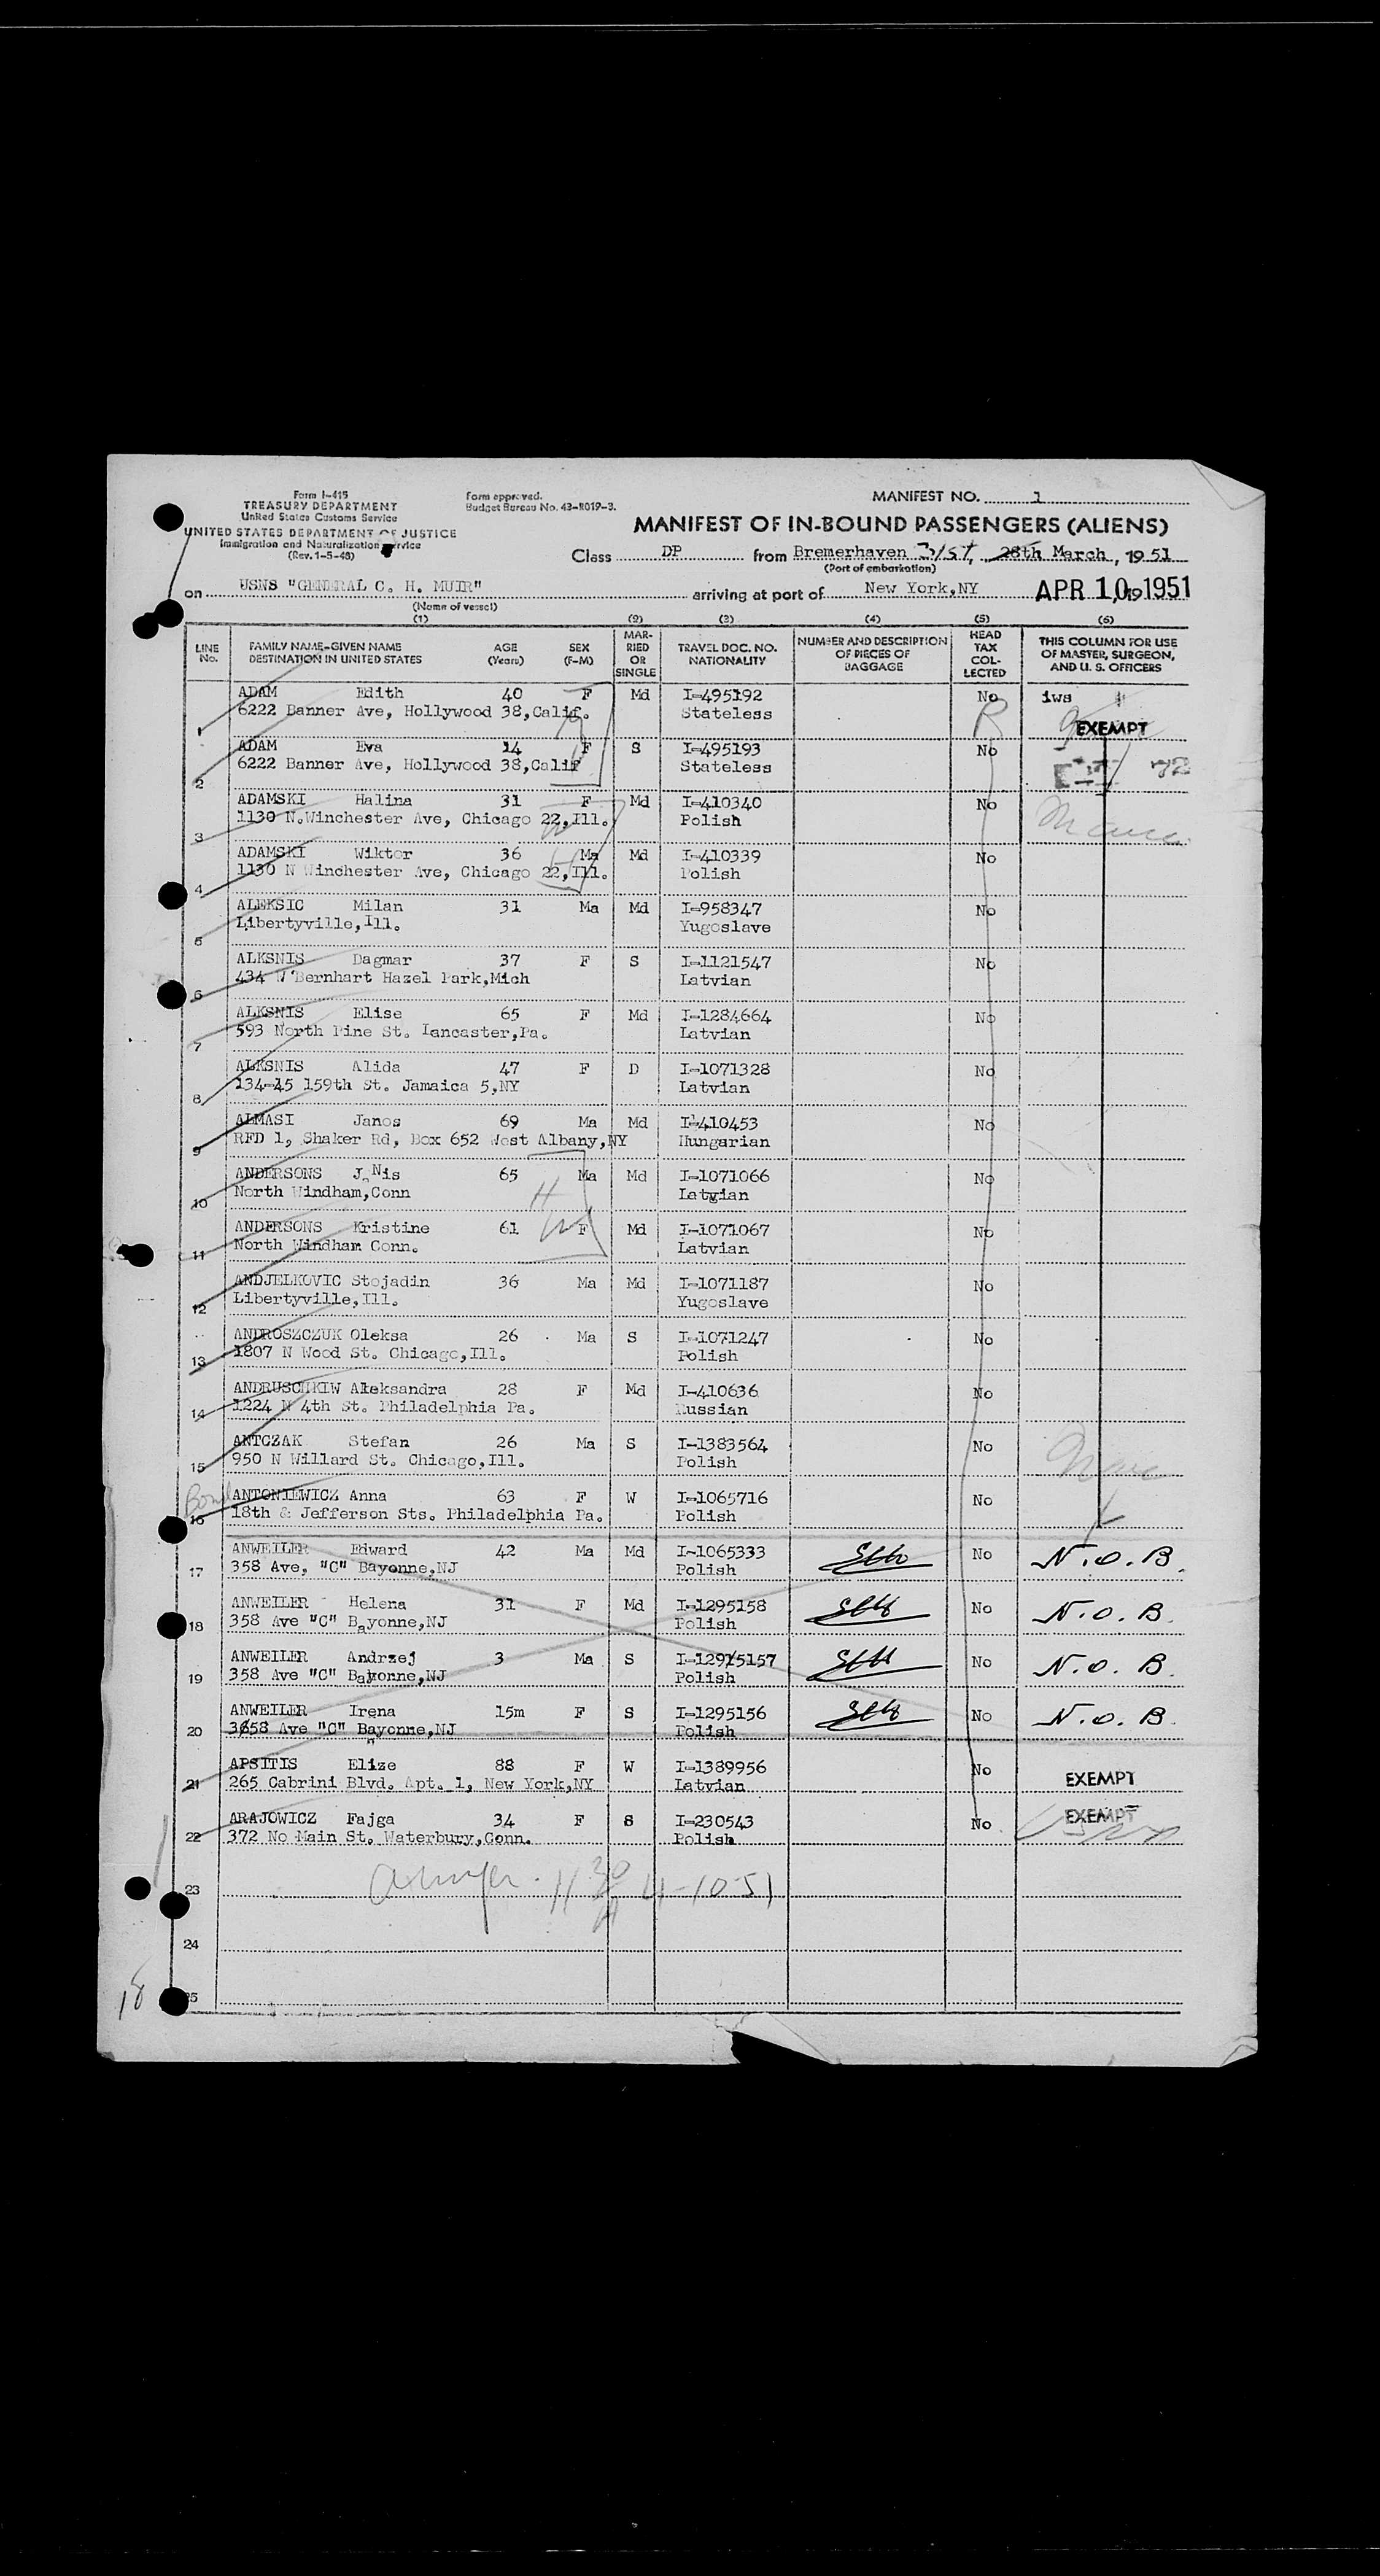 Form I-415
TREASURY DEPARTMENT
United States Customs Service
UNITED STATES DEPARTMENT OF JUSTICE
Immigration and Naturalization Service
(Rev. 1-5-48)
Form approved.
Budget Bureau No. 43-R019-3.
MANIFEST NO. 1
MANIFEST OF IN-BOUND PASSENGERS (ALIENS)
Class DP from Bremerhaven 31st, 28th March, 1951
(Port of embarkation)
on USNS "GENERAL C. H. MUIR" arriving at port of New York,NY APR 10 1951
(Name of vessel)
(1) (2) (3) (4) (5) (6)
LINE No. FAMILY NAME-GIVEN NAME DESTINATION IN UNITED STATES AGE (Years) SEX (F-M) MARRIED OR SINGLE TRAVEL DOC. NO. NATIONALITY NUMBER AND DESCRIPTION OF PIECES OF BAGGAGE HEAD TAX COLLECTED THIS COLUMN FOR USE OF MASTER, SURGEON, AND U. S. OFFICERS
ADAM Edith 40 F Md I-495192 No iws
1 6222 Banner Ave, Hollywood 38,Calif. Stateless EXEMPT
ADAM Eva 14 F S I-495193 No
2 6222 Banner Ave, Hollywood 38,Calif Stateless 72
ADAMSKI Halina 31 F Md I-410340 No
3 1130 N.Winchester Ave, Chicago 22,Ill. Polish
ADAMSKI Wiktor 36 Ma Md I-410339 No
4 1130 N Winchester Ave, Chicago 22,Ill. Polish
ALEKSIC Milan 31 Ma Md I-958347 No
5 Libertyville,Ill. Yugoslave
ALKSNIS Dagmar 37 F S I-1121547 No
6 434 W Bernhart Hazel Park,Mich Latvian
ALKSNIS Elise 65 F Md I-1284664 No
7 593 North Pine St. Lancaster,Pa. Latvian
ALKSNIS Alida 47 F D I-1071328 No
8 134-45 159th St. Jamaica 5,NY Latvian
ALMASI Janos 69 Ma Md I-410453 No
9 RFD 1, Shaker Rd, Box 652 West Albany,NY Hungarian
ANDERSONS JaNis 65 Ma Md I-1071066 No
10 North Windham,Conn Latvian
ANDERSONS Kristine 61 F Md I-1071067 No
11 North Windham Conn. Latvian
ANDJELKOVIC Stojadin 36 Ma Md I-1071187 No
12 Libertyville,Ill. Yugoslave
ANDROSZCZUK Oleksa 26 Ma S I-1071247 No
13 1807 N Wood St. Chicago,Ill. Polish
ANDRUSCHKIW Aleksandra 28 F Md I-410636 No
14 1224 N 4th St. Philadelphia Pa. Russian
ANTCZAK Stefan 26 Ma S I-1383564 No
15 950 N Willard St. Chicago,Ill. Polish
Bond ANTONIEWICZ Anna 63 F W I-1065716 No
16 18th & Jefferson Sts. Philadelphia Pa. Polish
ANWEILER Edward 42 Ma Md I-1065333 No N.O.B.
17 358 Ave, "C" Bayonne,NJ Polish
ANWEILER Helena 31 F Md I-1295158 No N.O.B.
18 358 Ave "C" Bayonne,NJ Polish
ANWEILER Andrzej 3 Ma S I-1295157 No N.O.B.
19 358 Ave "C" Bayonne,NJ Polish
ANWEILER Irena 15m F S I-1295156 No N.O.B.
20 358 Ave "C" Bayonne,NJ Polish
APSITIS Elize 88 F W I-1389956 No
21 265 Cabrini Blvd. Apt. 1, New York,NY Latvian EXEMPT
ARAJOWICZ Fajga 34 F S I-230543 No EXEMPT
22 372 No Main St. Waterbury,Conn. Polish
23 4-10-51
24
25
18